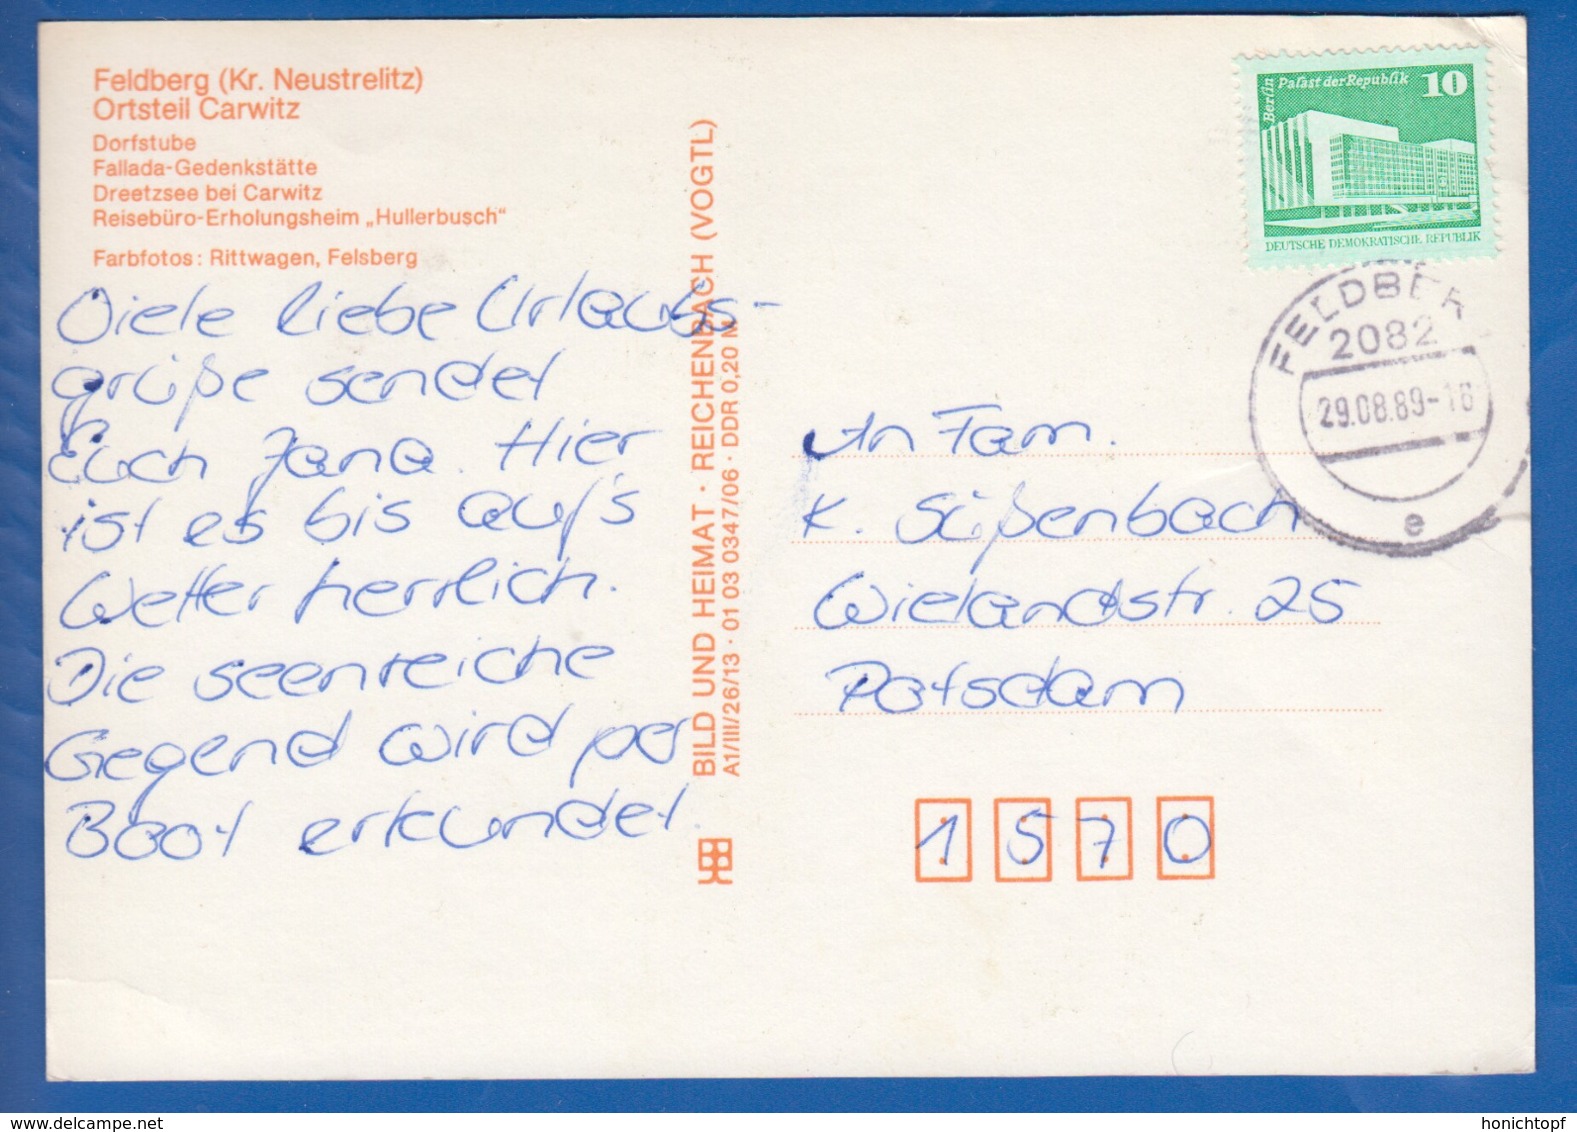 Feldberg (Kr. Neustrelitz)
Ortsteil Carwitz
Dorfstube
Fallada-Gedenkstätte
Dreetzsee bei Carwitz
Reisebüro-Erholungsheim „Hullerbusch“
Farbfotos: Rittwagen, Felsberg
Viele liebe Urlaubs-
grüße sendet
Euch Jana. Hier
ist es bis auf's
Wetter herrlich.
Die seenreiche
Gegend wird per
Boot erkundet.
BILD UND HEIMAT · REICHENBACH (VOGTL)
A1/III/26/13 · 01 03 0347/06 · DDR 0,20 M
Berlin
Palast der Republik
10
DEUTSCHE DEMOKRATISCHE REPUBLIK
FELDBER
2082
29.08.89-16
e
An Fam.
K. Süßenbach
Wielandstr. 25
Potsdam
1570
www.delcampe.net
honichtopf